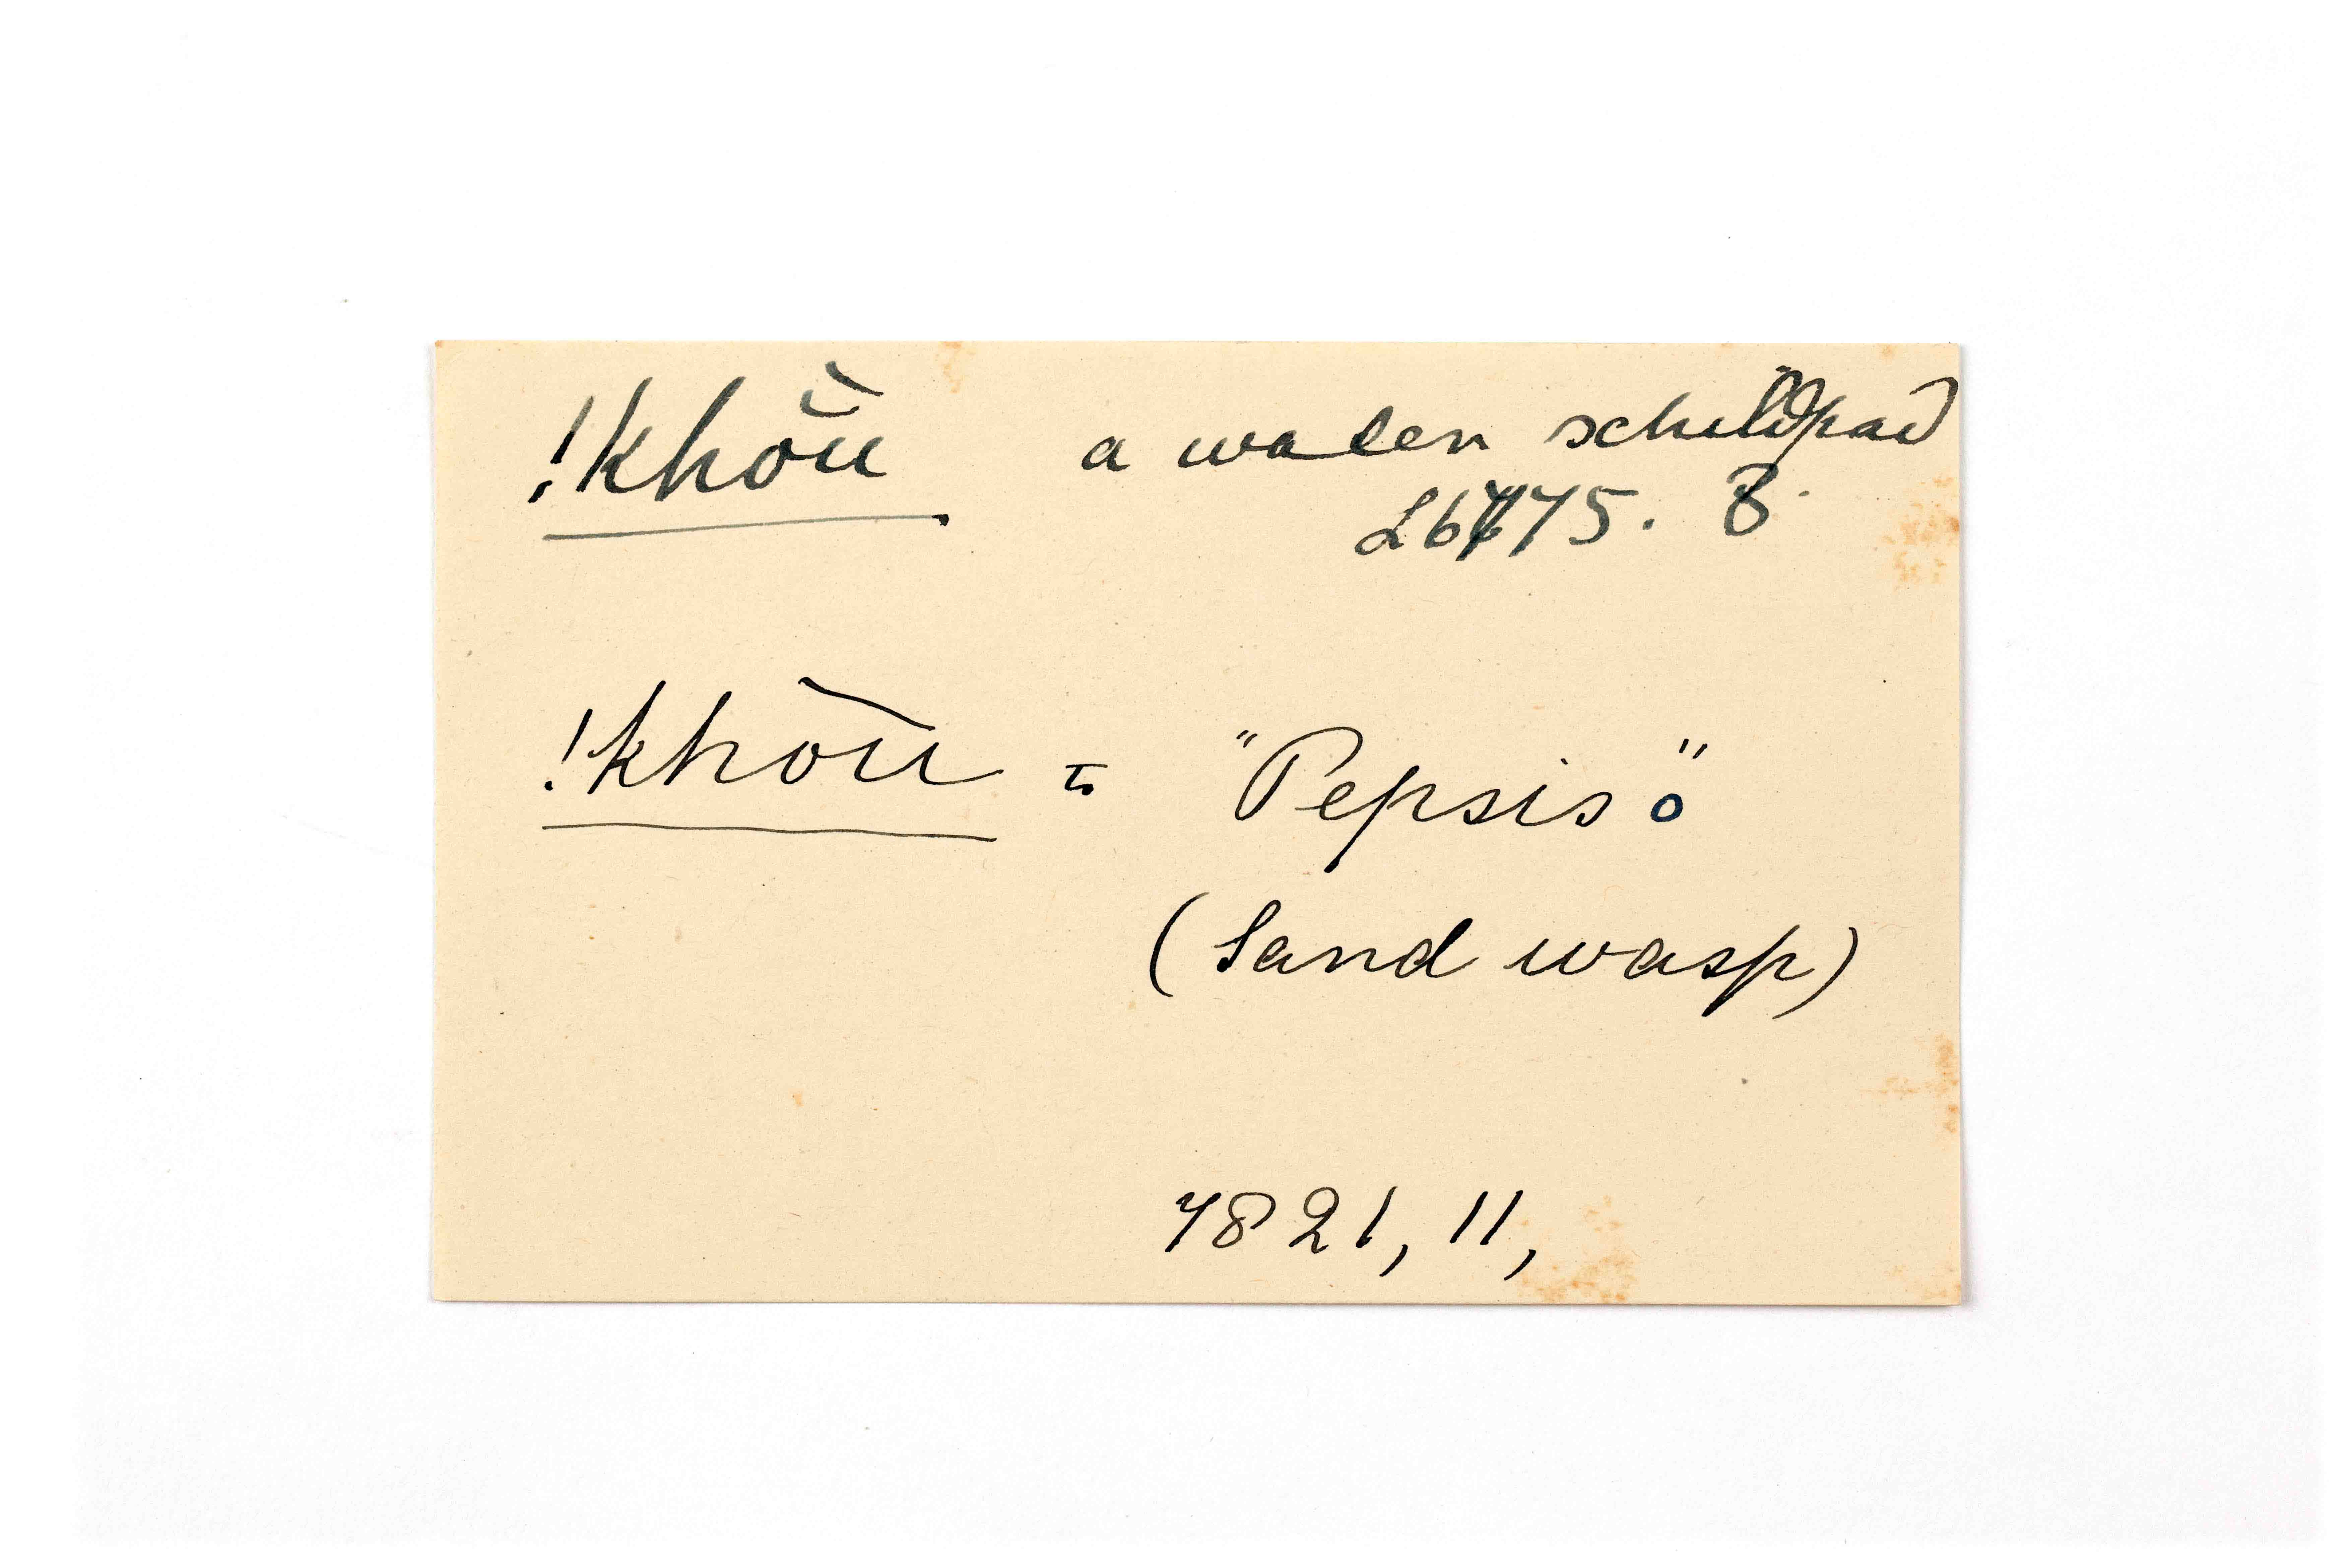 !khōu a water schildpad
5. B.
!khōu = "Pepsis"
(Sand wasp)
7821, 11,